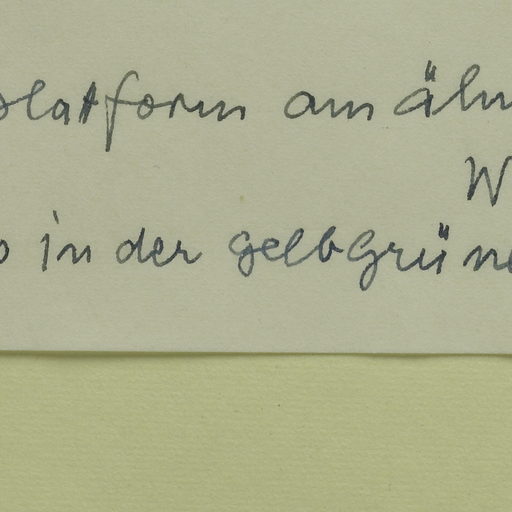 platform am ähn
W
o in der gelbgrüne